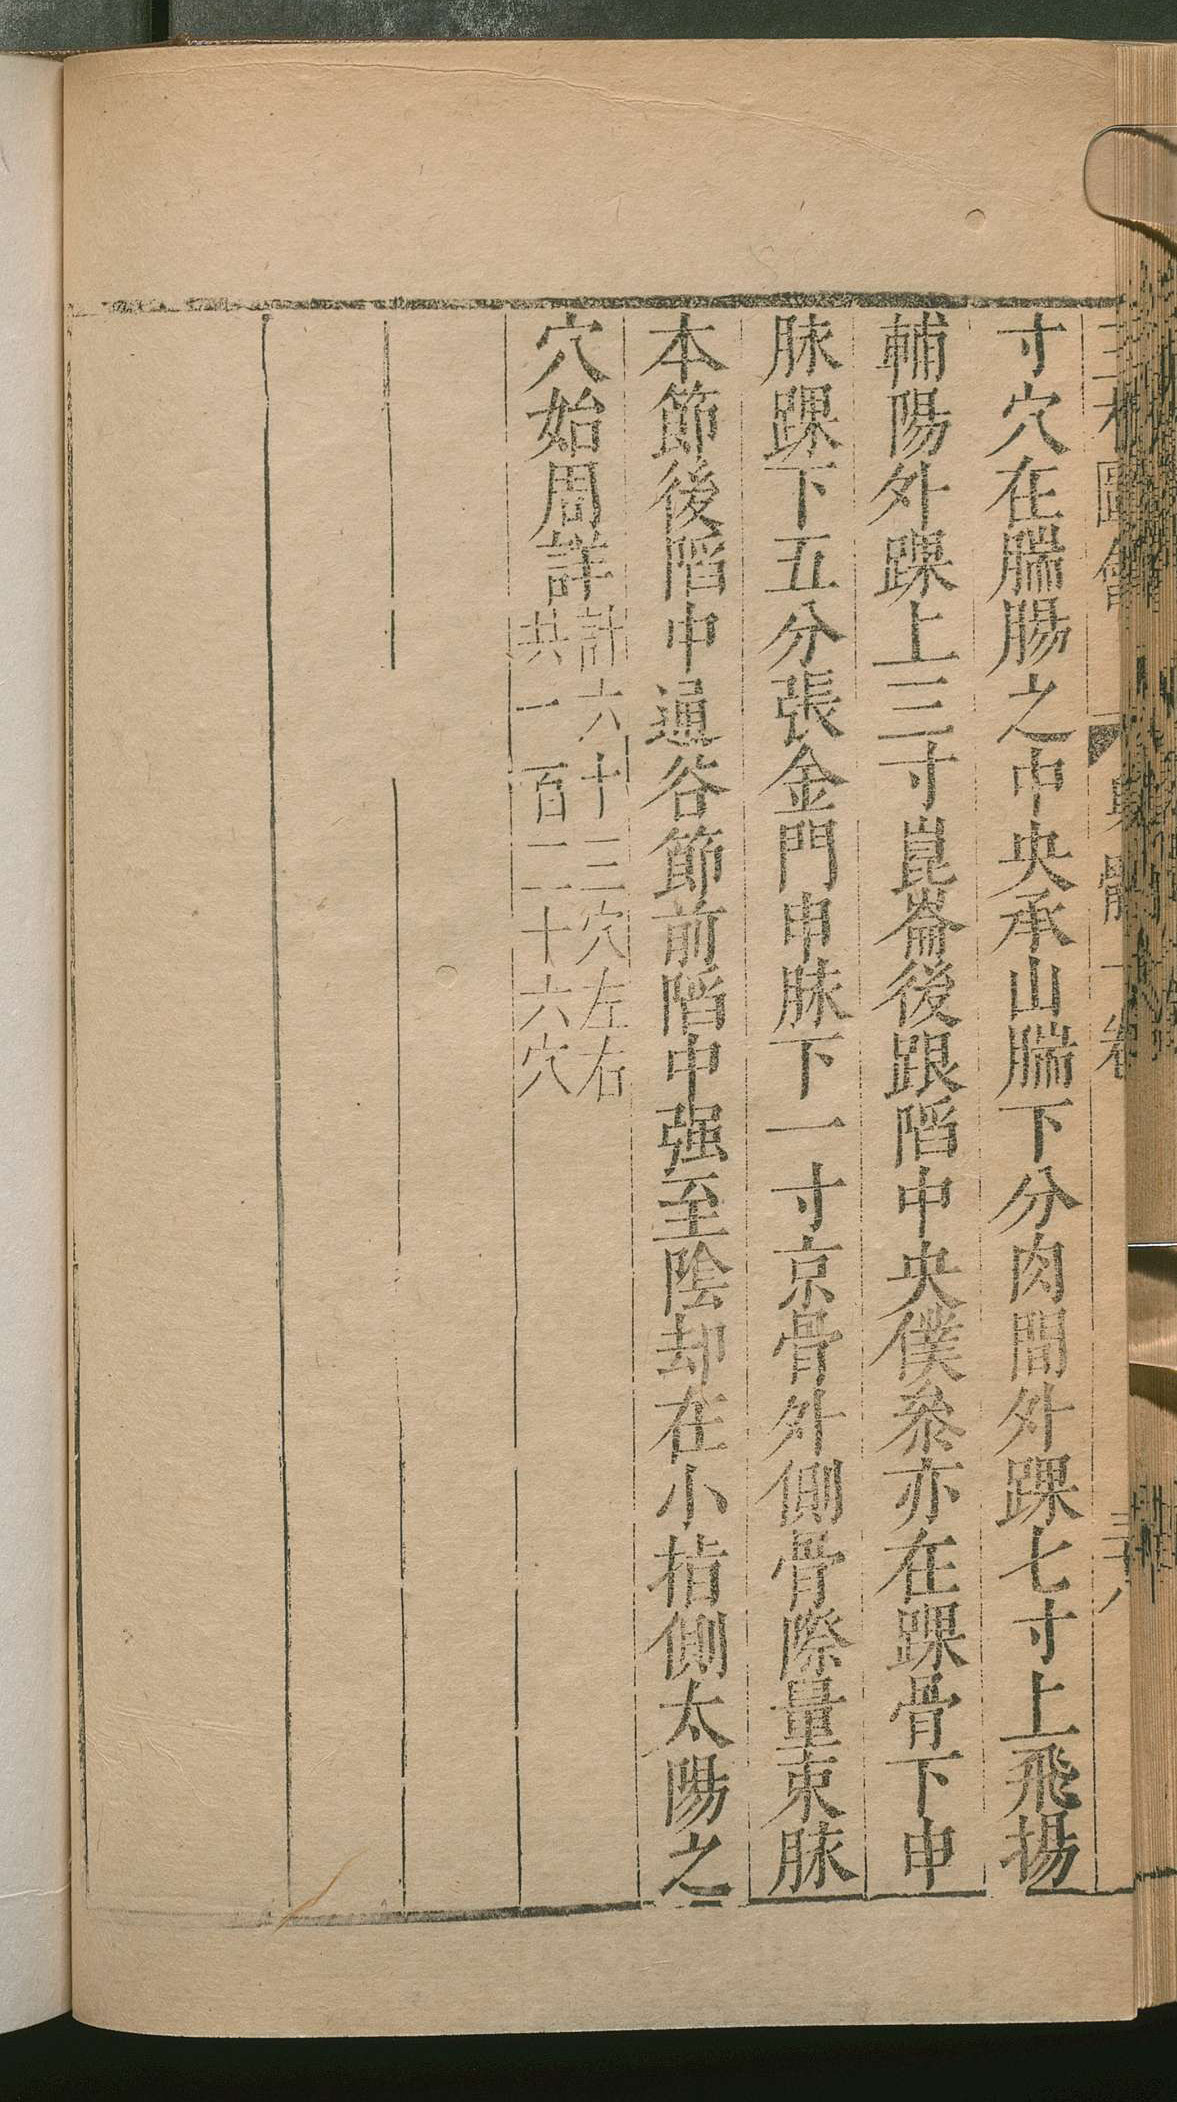 寸穴在腨腸之中央承山腨下分肉間外踝七寸上飛揚
輔陽外踝上三寸崑崙後跟䧟中央僕叅亦在踝骨下申
脉踝下五分張金門申脉下一寸京骨外側骨際量束脉
本節後䧟中通谷節前䧟中强至陰却在小指側太陽之
穴始周詳
計六十三穴左右
共一百二十六穴